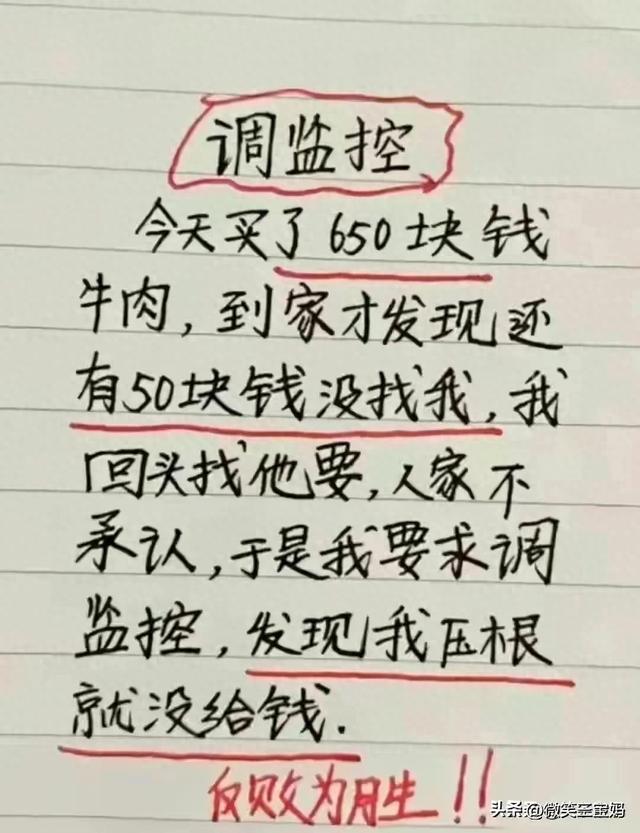 调监控
今天买了650块钱
牛肉，到家才发现还
有50块钱没找我，我
回头找他要，人家不
承认，于是我要求调
监控，发现我压根
就没给钱．
反败为胜！！
头条@微笑至宝妈